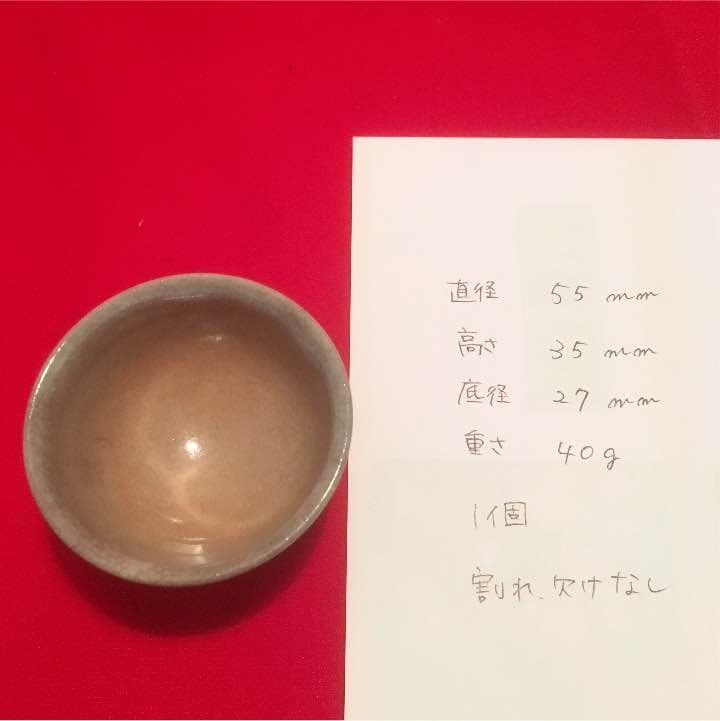 直径 55 mm
高さ 35 mm
底径 27 mm
重さ 40g
1個
割れ、欠けなし